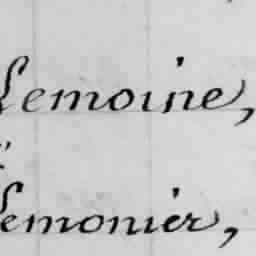 Lemoine,
Lemonier,